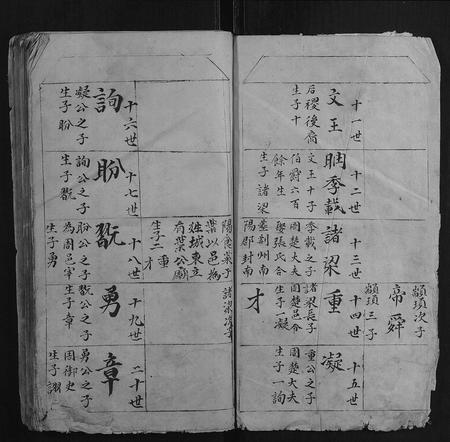 顓頊次子
帝舜
顓頊三子
十一世
文王
后稷後裔
生子十
十二世
聃季載
文王十子
伯爵六百
餘年生
生子諸梁
十三世
諸梁
季載之子
周楚大夫
聚張氏合
墓荊州南
陽郡封南
十四世
重
諸梁長子
周楚邑合
生子一凝
才
諸梁次子
十五世
凝
重公之子
周楚大夫
生子一詢
陽食葉子
葉以邑為
姓城東立
有葉公廟
生子二重
才
十六世
詢
凝公之子
生子盼
十七世
盼
詢公之子
生子翫
十八世
翫
盼公之子
為周邑宰
生子勇
十九世
勇
翫公之子
生子章
二十世
章
勇公之子
周御史
生子詡